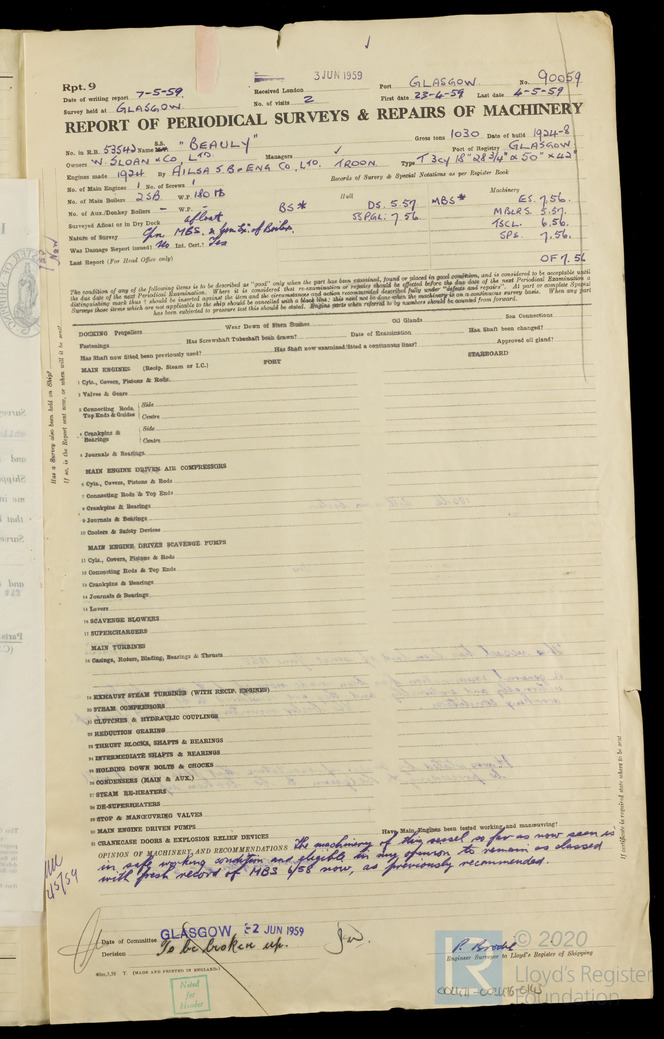 3 JUN 1959
Rpt. 9
Date of writing report 7-5-59. Received London Port GLASGOW. No. 90059
Survey held at GLASGOW. No. of visits 2 First date 23-4-59 Last date 4-5-59
REPORT OF PERIODICAL SURVEYS & REPAIRS OF MACHINERY
No. in R.B. 53542 Name S.S. "BEAULY" Gross tons 1030 Date of build 1924-8
Owners W. SLOAN & CO, LTD. Managers Port of Registry GLASGOW
Engines made 1924 By AILSA S.B. & ENG CO, LTD. TROON. Type T 3cy 18" 28 3/4" & 50" x 42"
No. of Main Engines 1 No. of Screws 1 Records of Survey & Special Notations as per Register Book
No. of Main Boilers 2 SB W.P. 180 lb Hull Machinery
No. of Aux./Donkey Boilers – W.P. – BS* DS. 5.57 MBS* ES. 7.56.
Surveyed Afloat or in Dry Dock afloat SSPGL: 7.56. MBLRS. 5.57.
Nature of Survey Gen. MBS. & Gen Ex. of Boiler. TSCL. 6.56.
Was Damage Report issued? No Int. Cert.? Yes SPS. 7.56.
Last Report (For Head Office only) OF 7.56
The condition of any of the following items is to be described as "good" only when the part has been examined, found or placed in good condition, and is considered to be acceptable until
the due date of the next Periodical Examination. Where it is considered that re-examination or repairs should be effected before the due date of the next Periodical Examination, a
distinguishing mark thus † should be inserted against the item and the circumstances and action recommended described fully under "defects and repairs". At part or complete Special
Surveys those items which are not applicable to the ship should be cancelled with a black line: this need not be done when the machinery is on a continuous survey basis. When any part
has been subjected to pressure test this should be stated. Engine parts when referred to by numbers should be counted from forward.
DOCKING Propellers Wear Down of Stern Bushes Oil Glands Sea Connections
Fastenings Has Screwshaft Tubeshaft been drawn? Date of Examination Has Shaft been changed?
Has Shaft now fitted been previously used? Has Shaft now examined/fitted a continuous liner? Approved oil gland?
MAIN ENGINES (Recip. Steam or I.C.) PORT STARBOARD
1 Cyls., Covers, Pistons & Rods
2 Valves & Gears
3 Connecting Rods, Top Ends & Guides Side
Centre
4 Crankpins & Bearings Side
Centre
5 Journals & Bearings
MAIN ENGINE DRIVEN AIR COMPRESSORS
6 Cyls., Covers, Pistons & Rods
7 Connecting Rods & Top Ends
8 Crankpins & Bearings
9 Journals & Bearings
10 Coolers & Safety Devices
MAIN ENGINE DRIVEN SCAVENGE PUMPS
11 Cyls., Covers, Pistons & Rods
12 Connecting Rods & Top Ends
13 Crankpins & Bearings
14 Journals & Bearings
15 Levers
16 SCAVENGE BLOWERS
17 SUPERCHARGERS
MAIN TURBINES
18 Casings, Rotors, Blading, Bearings & Thrusts
19 EXHAUST STEAM TURBINES (WITH RECIP. ENGINES)
20 STEAM COMPRESSORS
21 CLUTCHES & HYDRAULIC COUPLINGS
22 REDUCTION GEARING
23 THRUST BLOCKS, SHAFTS & BEARINGS
24 INTERMEDIATE SHAFTS & BEARINGS
25 HOLDING DOWN BOLTS & CHOCKS
26 CONDENSERS (MAIN & AUX.)
27 STEAM RE-HEATERS
28 DE-SUPERHEATERS
29 STOP & MANŒUVRING VALVES
30 MAIN ENGINE DRIVEN PUMPS Have Main Engines been tested working and manœuvring?
31 CRANKCASE DOORS & EXPLOSION RELIEF DEVICES
OPINION OF MACHINERY AND RECOMMENDATIONS The machinery of this vessel so far as now seen is
in safe working condition and eligible in my opinion to remain as classed
with fresh record of MBS 6/58 now, as previously recommended.
Date of Committee GLASGOW, -2 JUN 1959
Decision To be broken up.
P. Brodie
Engineer Surveyor to Lloyd's Register of Shipping
(MADE AND PRINTED IN ENGLAND.)
Noted
for
Number
Has a Survey also been held on Ship?
If so, is the Report sent now, or when will it be sent?
If certificate is required state where to be sent
© 2020
Lloyd's Register
Foundation